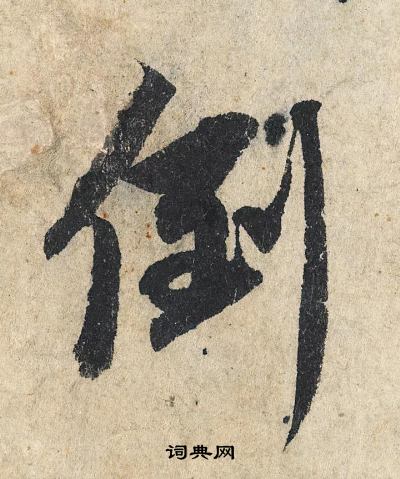 倒
词典网